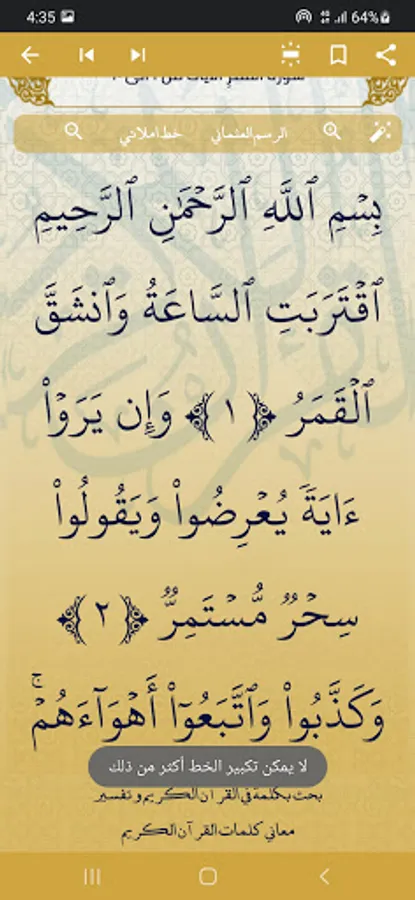 4:35 64%
خط املائي الرسم العثماني
بِسۡمِ ٱللَّهِ ٱلرَّحۡمَٰنِ ٱلرَّحِيمِ
ٱقۡتَرَبَتِ ٱلسَّاعَةُ وَٱنشَقَّ
ٱلۡقَمَرُ ﴿١﴾ وَإِن يَرَوۡاْ
ءَايَةٗ يُعۡرِضُواْ وَيَقُولُواْ
سِحۡرٞ مُّسۡتَمِرّٞ ﴿٢﴾
وَكَذَّبُواْ وَٱتَّبَعُوٓاْ أَهۡوَآءَهُمۡۚ
لا يمكن تكبير الخط أكثر من ذلك
بحث بكلمة في القرآن الكريم وتفسير
معاني كلمات القرآن الكريم